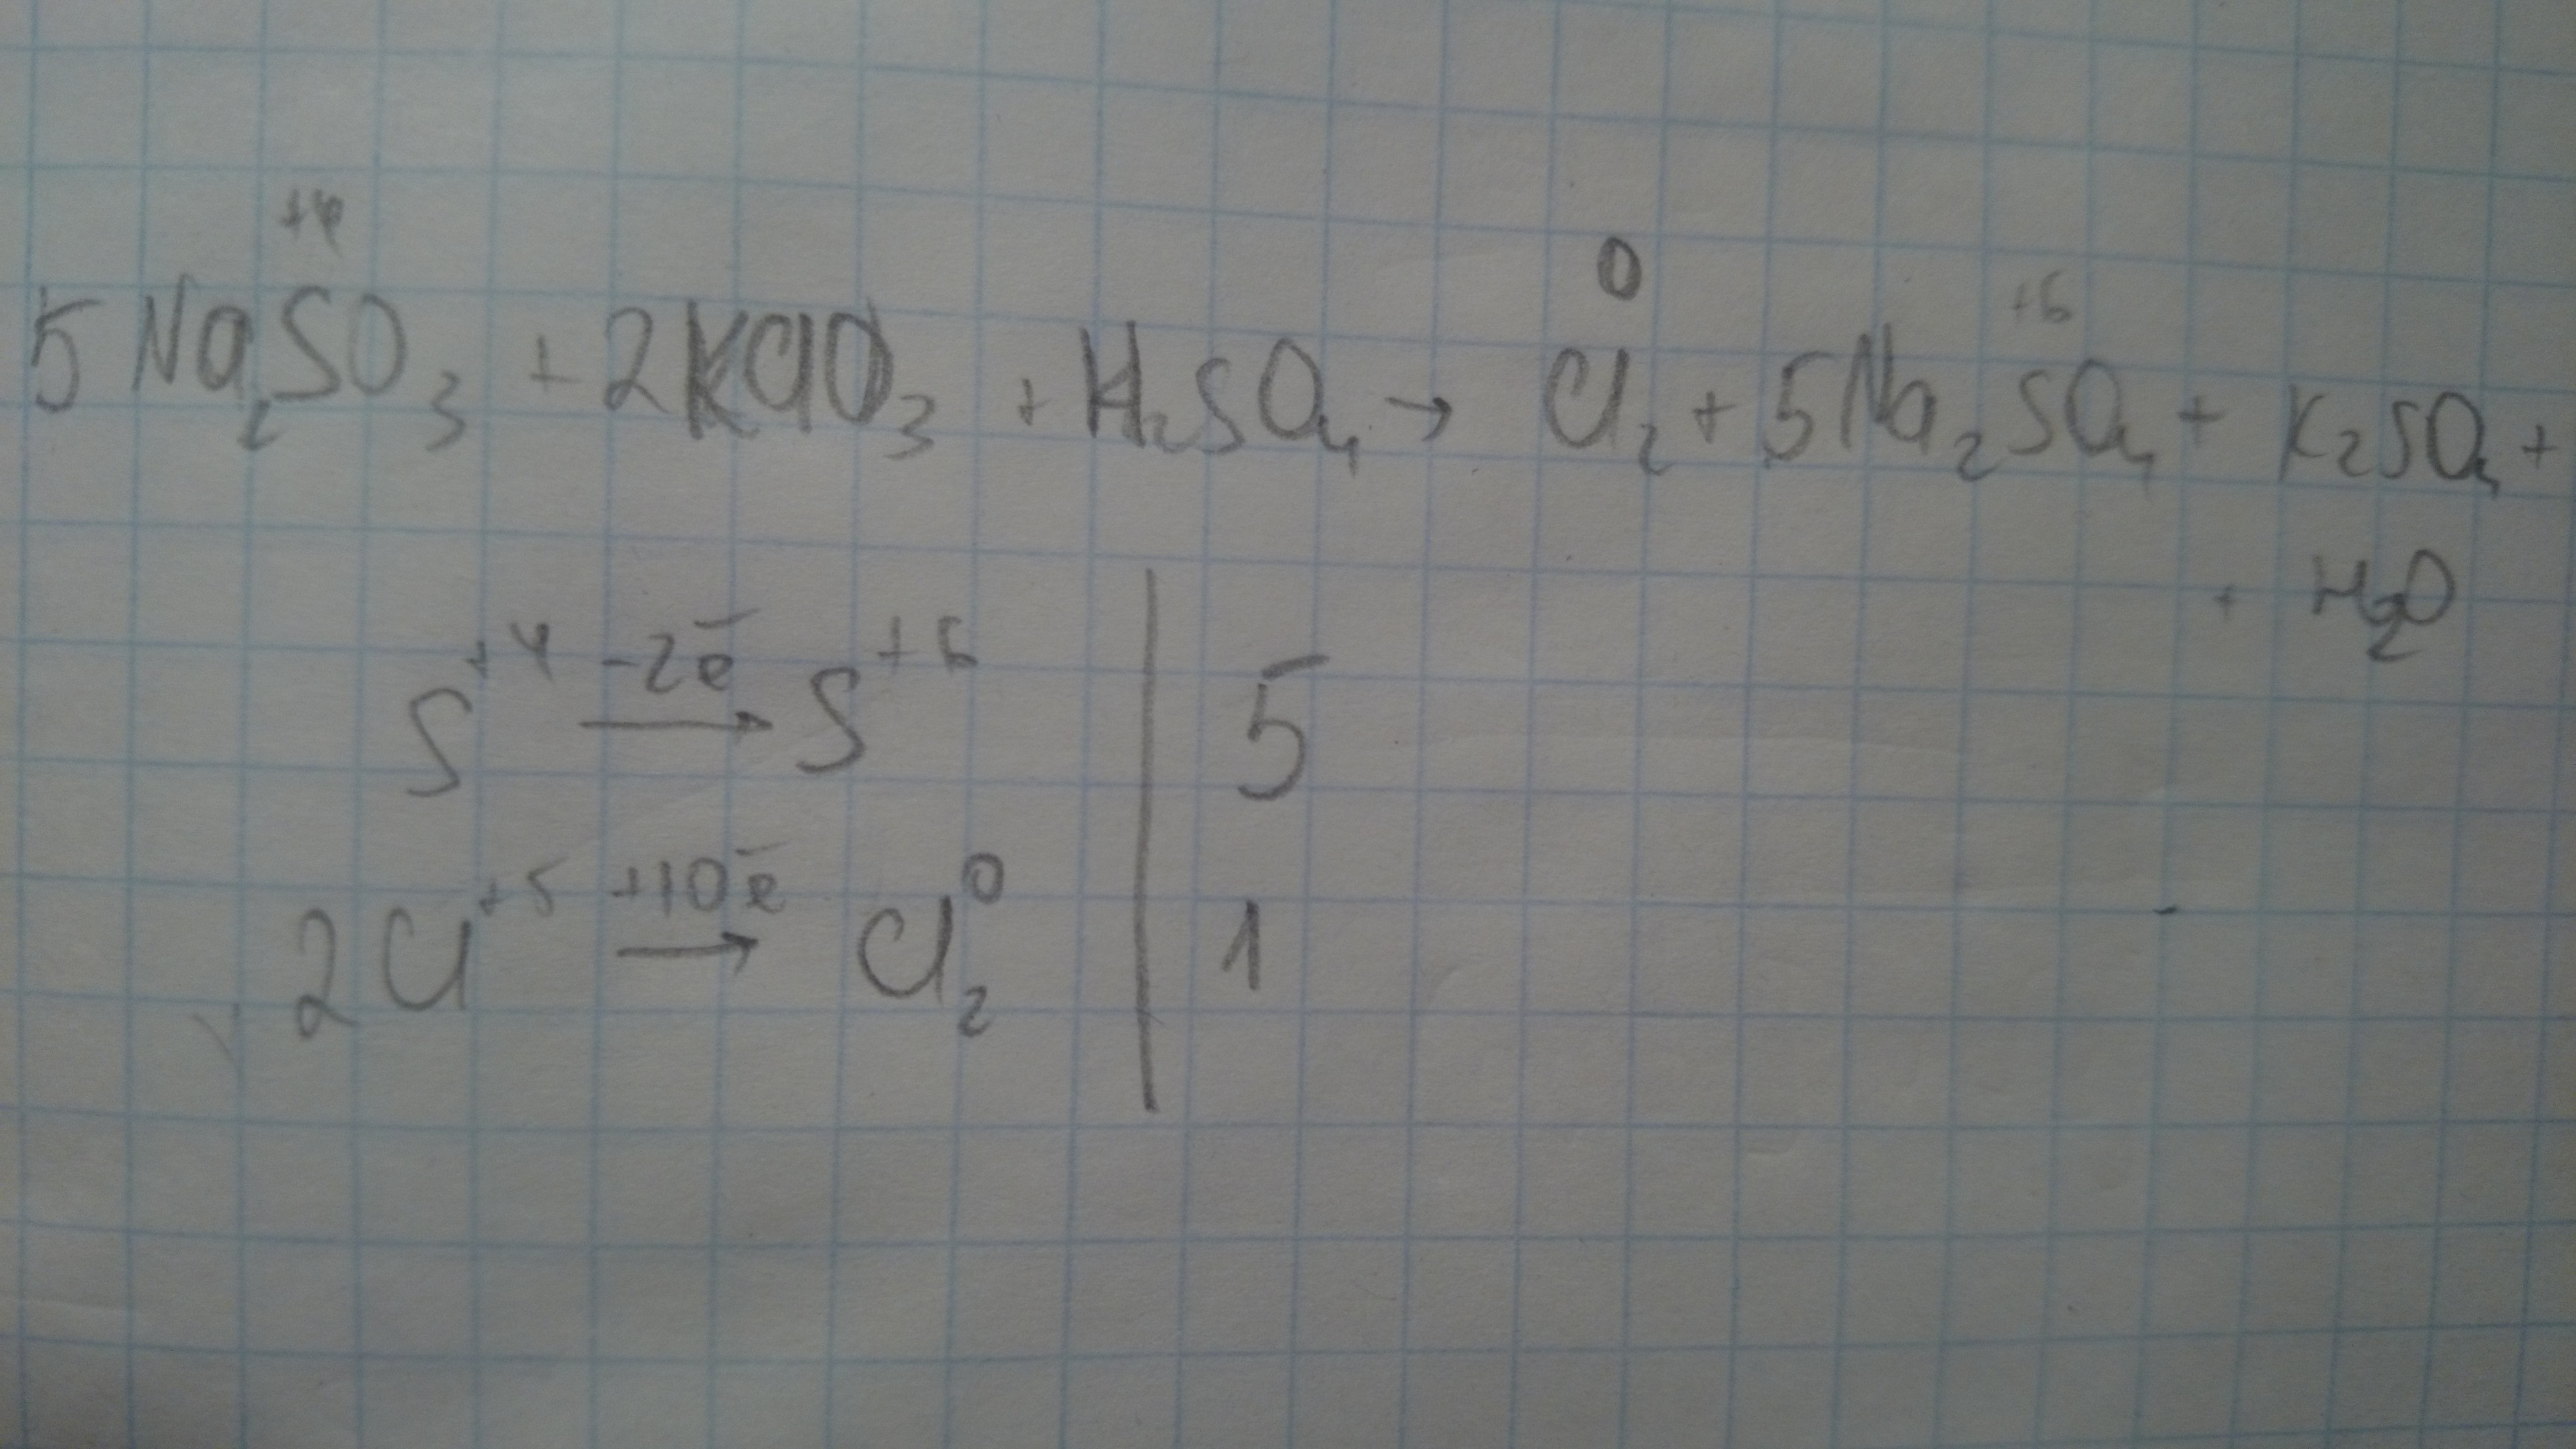 +4 0 +6
5Na₂SO₃ + 2KClO₃ + H₂SO₄ → Cl₂ + 5Na₂SO₄ + K₂SO₄ +
+ H₂O
S⁺⁴ -2ē → S⁺⁶ | 5
2Cl⁺⁵ +10ē → Cl₂⁰ | 1